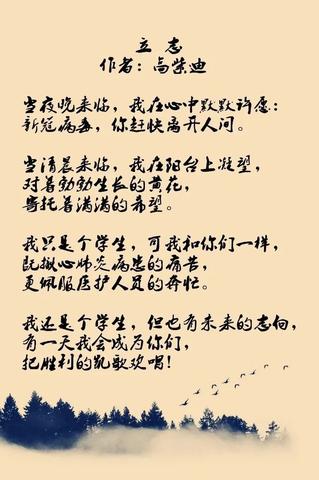 立 志
作者：高紫迪
当夜晚来临，我在心中默默许愿：
新冠病毒，你赶快离开人间。
当清晨来临，我在阳台上凝望，
对着勃勃生长的黄花，
寄托着满满的希望。
我只是个学生，可我和你们一样，
既揪心肺炎病患的痛苦，
更佩服医护人员的奔忙。
我还是个学生，但也有未来的志向，
有一天我会成为你们，
把胜利的凯歌欢唱！